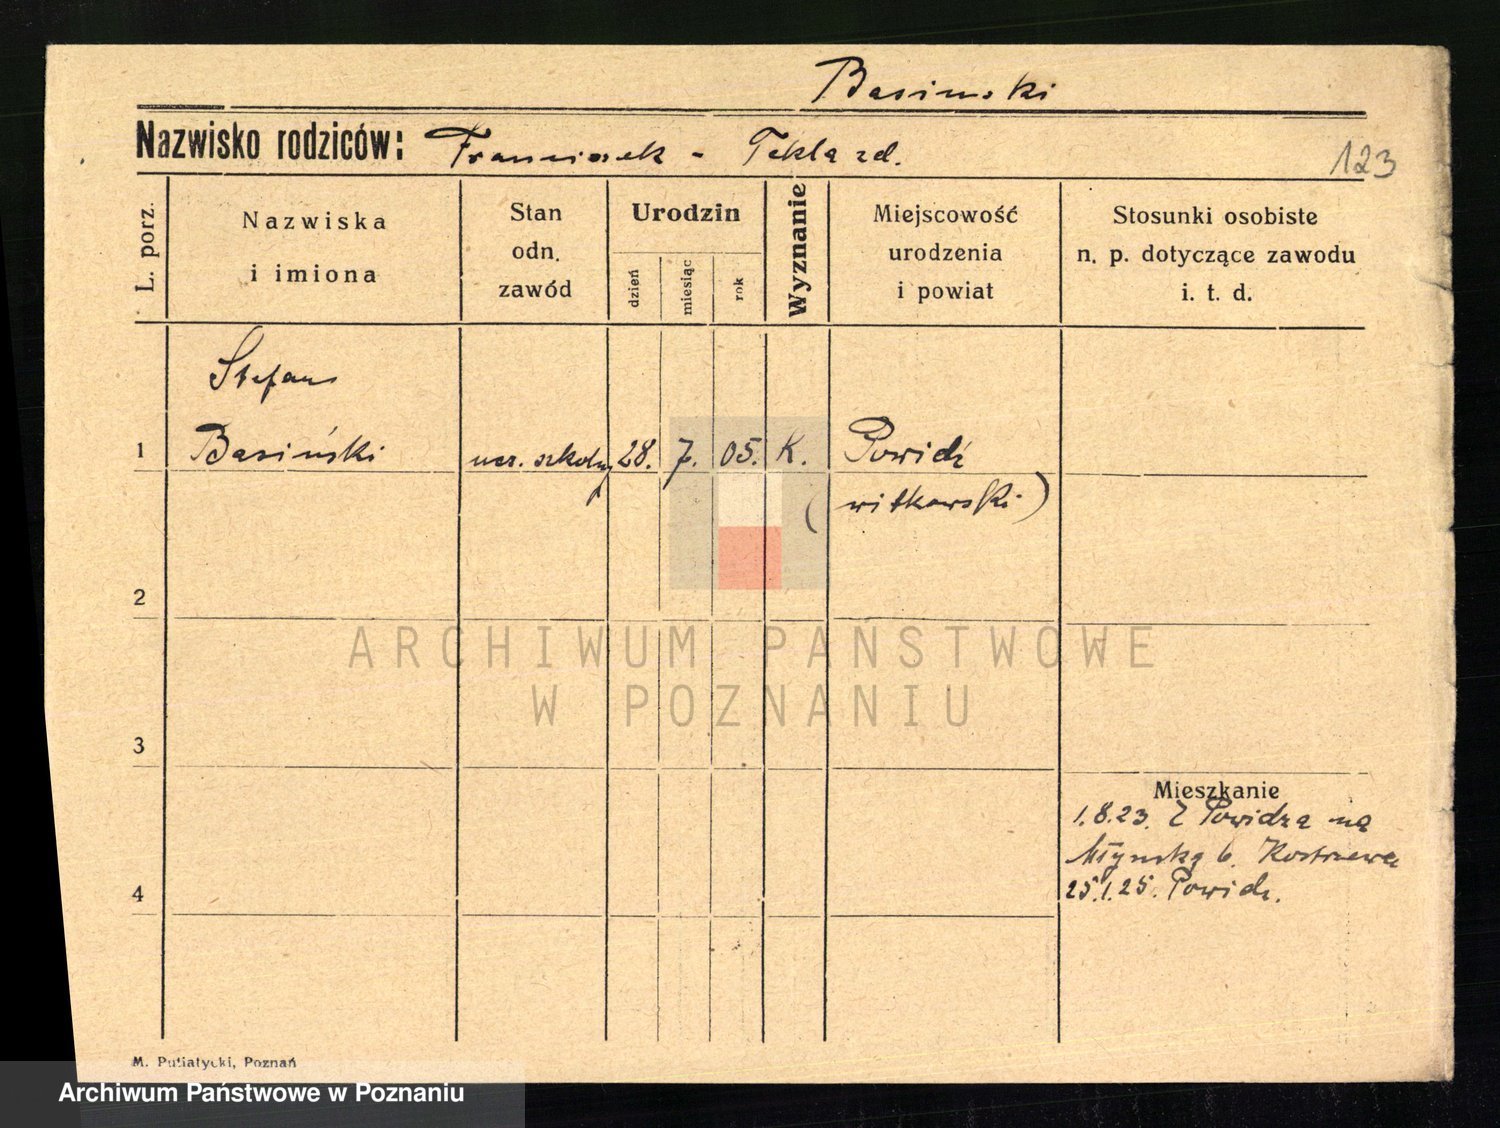 Basinski
Nazwisko rodziców: Franciszek - Tekla zd.
123
L. porz.
Nazwiska
i imiona
Stan
odn.
zawód
Urodzin
dzień
miesiąc
rok
Wyznanie
Miejscowość
urodzenia
i powiat
Stosunki osobiste
n. p. dotyczące zawodu
i. t. d.
Stefan
1 Basiński ucz. szkolny 28. 7. 05. K. Powidz
(witkowski)
2
3
Mieszkanie
1.8.23. Z Powidza na
Młyńską 6. Kostrzewa
4 25.1.25. Powidz.
M. Putiatycki, Poznań
ARCHIWUM PAŃSTWOWE
W POZNANIU
Archiwum Państwowe w Poznaniu